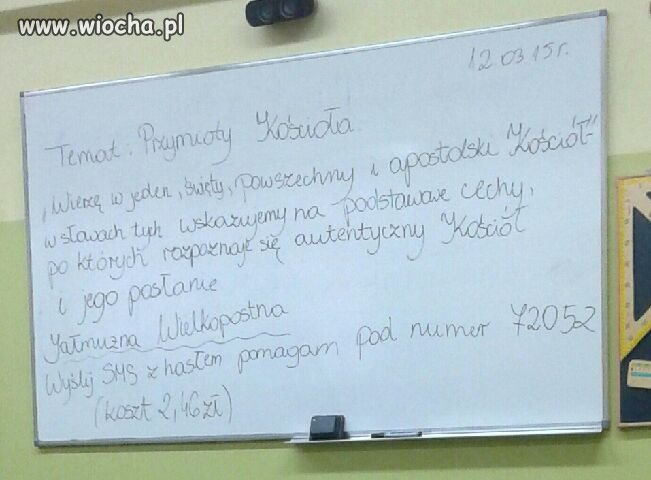 www.wiocha.pl
12.03.15r.
Temat: Przymioty Kościoła.
"Wierzę w jeden, święty, powszechny i apostolski Kościół" -
w słowach tych wskazujemy na podstawowe cechy,
po których rozpoznaje się autentyczny Kościół
i jego posłanie
Jałmużna Wielkopostna
Wyślij SMS z hasłem pomagam pod numer 72052
(koszt 2,46 zł)